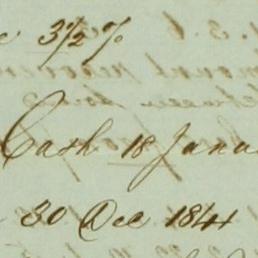 3½%
Cash 18 Janu
30 Dec 1841